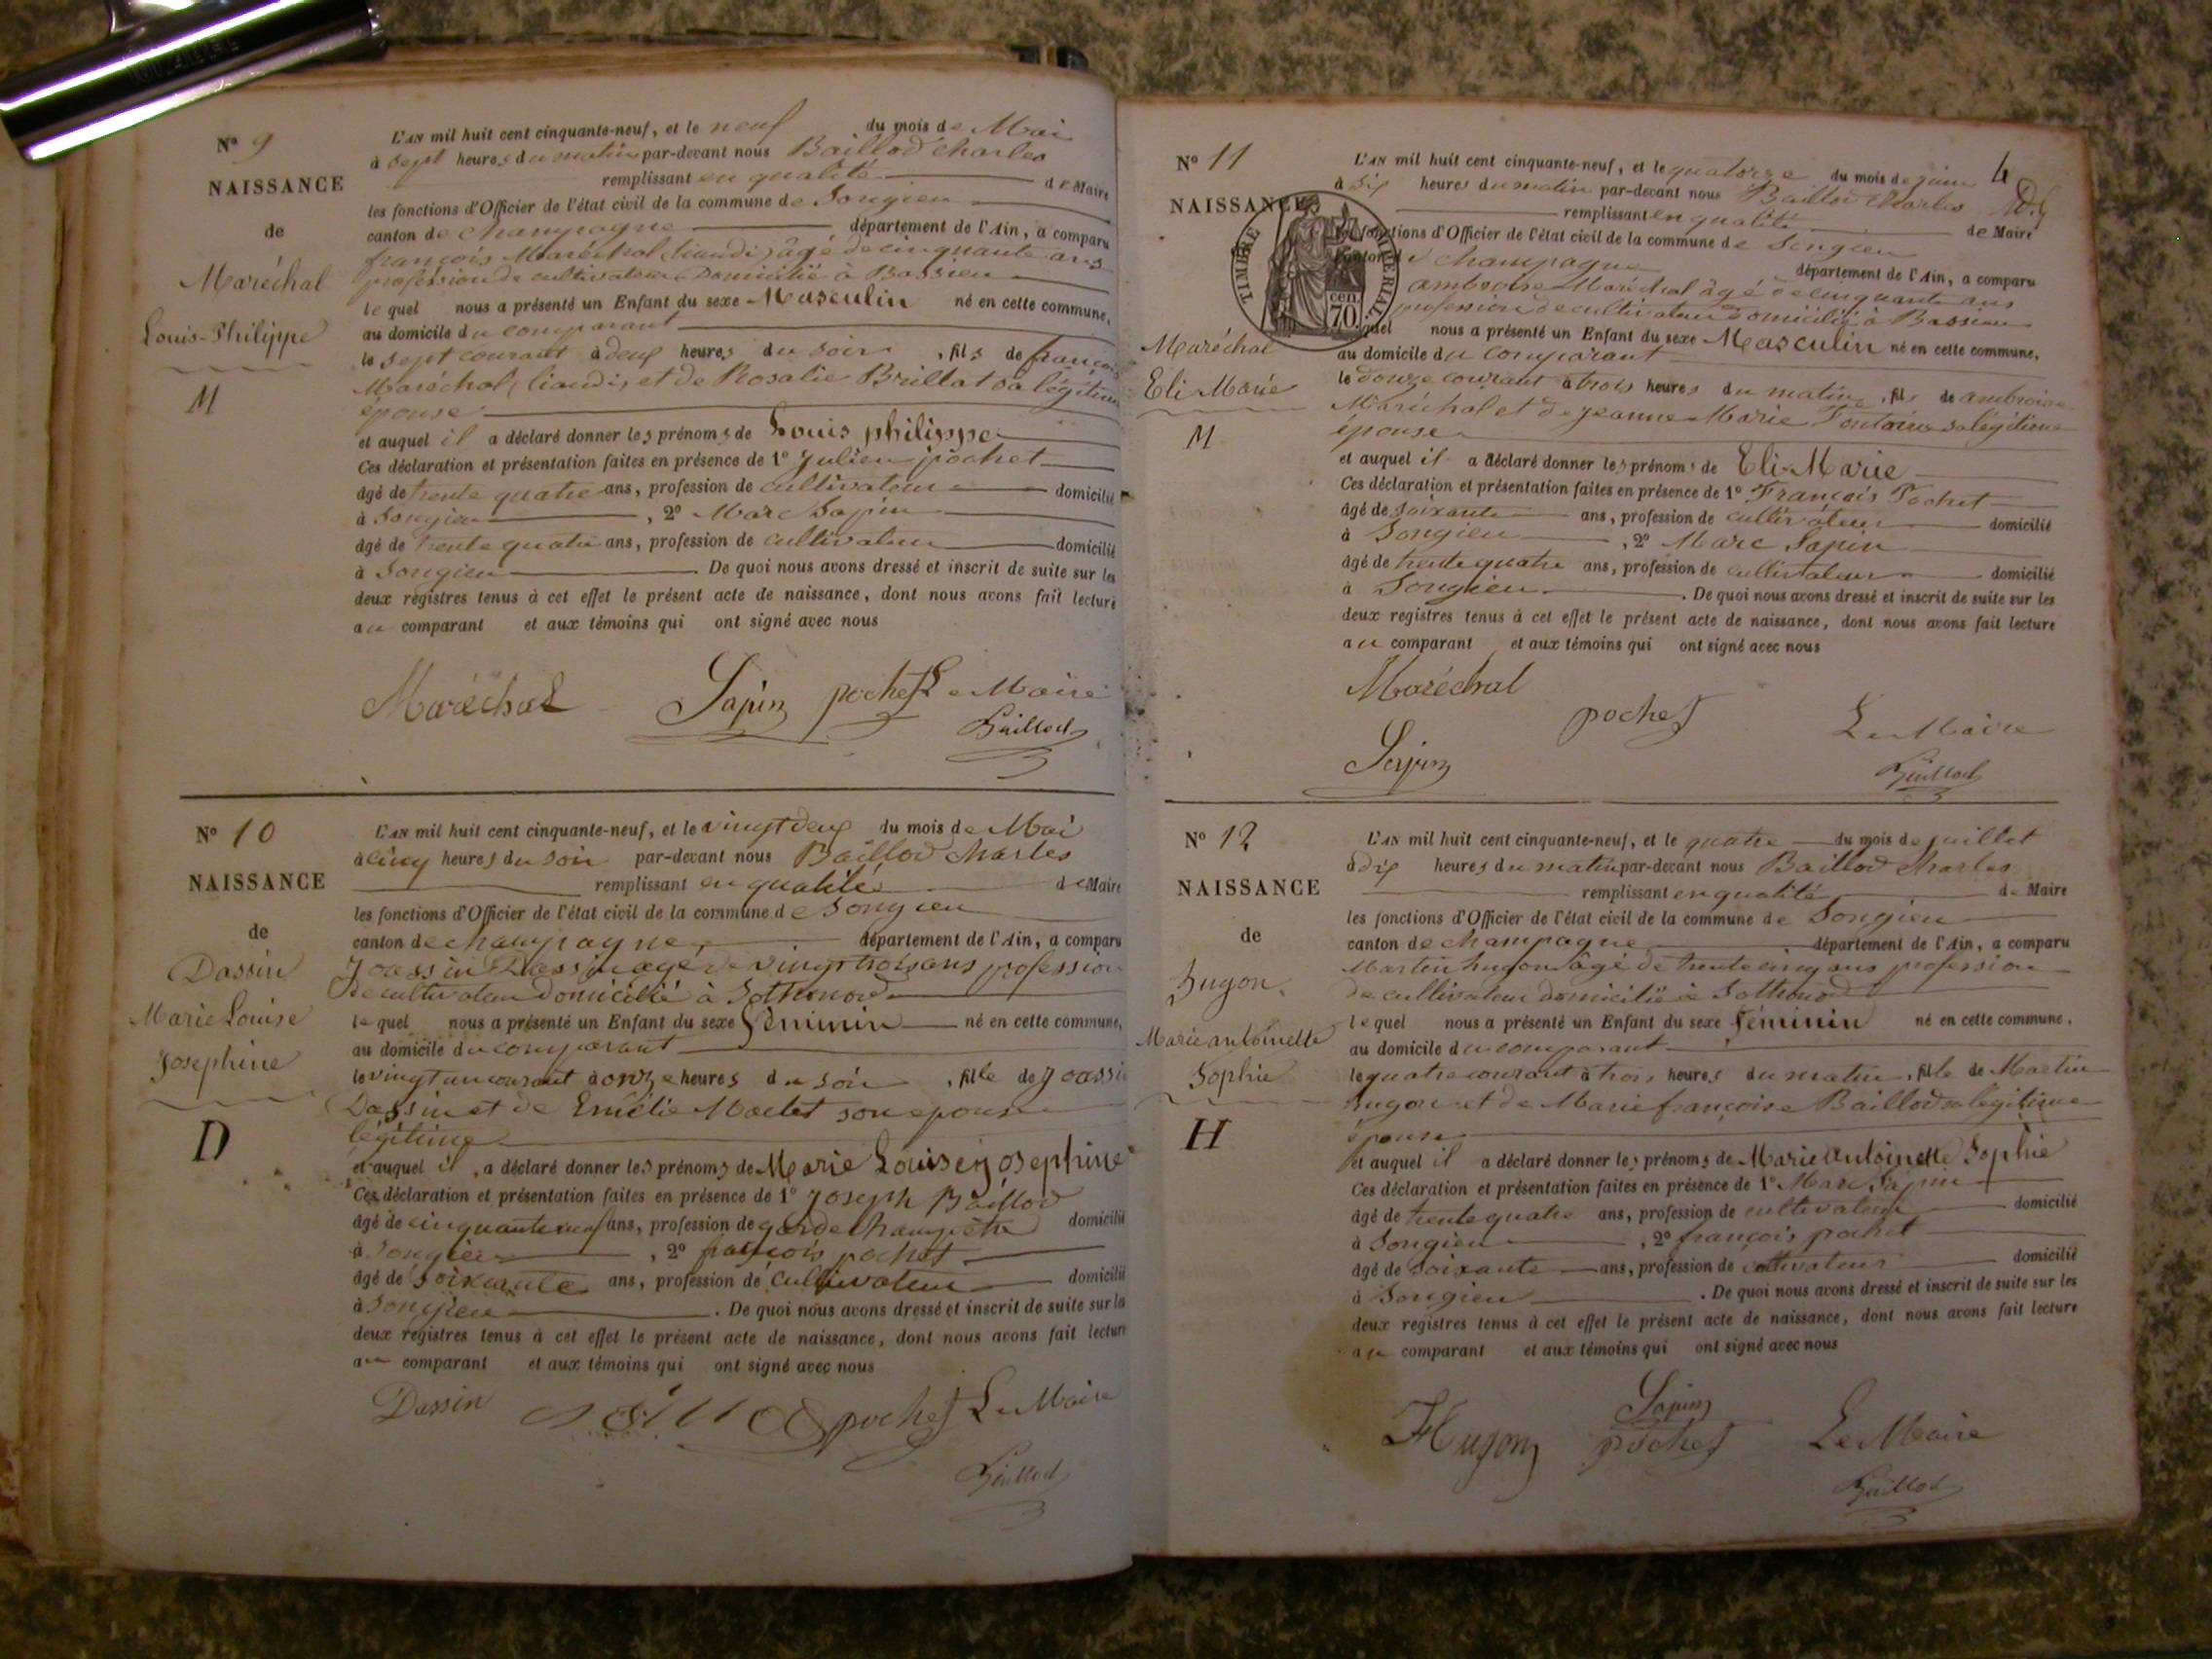 N° 9
NAISSANCE
de
Maréchal
Louis-Philippe
M
L'AN mil huit cent cinquante-neuf, et le neuf du mois de Mai
à sept heures du matin par-devant nous Baillod Charles
remplissant en qualité de Maire
les fonctions d'Officier de l'état civil de la commune de Songieu
canton de champagne département de l'Ain, a comparu
françois Maréchal (liaudi) âgé de cinquante ans
profession de cultivateur Domicilié à Bassieu
lequel nous a présenté un Enfant du sexe Masculin né en cette commune,
au domicile du comparant
le sept courant à deux heures du soir, fils de françois
Maréchal (liaudi) et de Rosalie Brillat sa légitime
épouse
et auquel il a déclaré donner les prénoms de Louis philippe
Ces déclaration et présentation faites en présence de 1° Julien pochet
âgé de trente quatre ans, profession de cultivateur domicilié
à Songieu, 2° Marc Sapin
âgé de trente quatre ans, profession de cultivateur domicilié
à Songieu. De quoi nous avons dressé et inscrit de suite sur les
deux registres tenus à cet effet le présent acte de naissance, dont nous avons fait lecture
au comparant et aux témoins qui ont signé avec nous
Maréchal Sapin pochet Le Maire
Baillod
N° 10
NAISSANCE
de
Dassin
Marie Louise
Josephine
D
L'AN mil huit cent cinquante-neuf, et le vingt deux du mois de Mai
à cinq heures du soir par-devant nous Baillod Charles
remplissant en qualité de Maire
les fonctions d'Officier de l'état civil de la commune de Songieu
canton de champagne département de l'Ain, a comparu
Joassin Dassin agé de vingt trois ans profession
de cultivateur Domicilié à Sothonod
lequel nous a présenté un Enfant du sexe féminin né en cette commune,
au domicile du comparant
le vingt un courant à onze heures du soir, fille de Joassin
Dassin et de Emélie Maclet son epouse
légitime
et auquel il a déclaré donner les prénoms de Marie Louise josephine
Ces déclaration et présentation faites en présence de 1° Joseph Baillod
âgé de cinquante neuf ans, profession de garde champêtre domicilié
à Songieu, 2° françois pochet
âgé de soixante ans, profession de cultivateur domicilié
à Songieu. De quoi nous avons dressé et inscrit de suite sur les
deux registres tenus à cet effet le présent acte de naissance, dont nous avons fait lecture
au comparant et aux témoins qui ont signé avec nous
Dassin pochet Le Maire
Baillod
4
N° 11
NAISSANCE
TIMBRE IMPERIAL
cen. 70
Maréchal
Eli Marie
M
L'AN mil huit cent cinquante-neuf, et le quatorze du mois de juin
à six heures du matin par-devant nous Baillod Charles
remplissant en qualité de Maire
les fonctions d'Officier de l'état civil de la commune de Songieu
canton de champagne département de l'Ain, a comparu
ambroise Maréchal âgé de cinquante ans
profession de cultivateur domicilié à Bassieu
lequel nous a présenté un Enfant du sexe Masculin né en cette commune,
au domicile du comparant
le douze courant à trois heures du matin, fils de ambroise
Maréchal et de jeanne Marie Fontaine sa légitime
épouse
et auquel il a déclaré donner les prénoms de Eli-Marie
Ces déclaration et présentation faites en présence de 1° François Pochet
âgé de soixante ans, profession de cultivateur domicilié
à Songieu, 2° Marc Sapin
âgé de trente quatre ans, profession de cultivateur domicilié
à Songieu. De quoi nous avons dressé et inscrit de suite sur les
deux registres tenus à cet effet le présent acte de naissance, dont nous avons fait lecture
au comparant et aux témoins qui ont signé avec nous
Maréchal pochet Le Maire
Sapin Baillod
N° 12
NAISSANCE
de
hugon
Marie antoinette
Sophie
H
L'AN mil huit cent cinquante-neuf, et le quatre du mois de juillet
à dix heures du matin par-devant nous Baillod Charles
remplissant en qualité de Maire
les fonctions d'Officier de l'état civil de la commune de Songieu
canton de champagne département de l'Ain, a comparu
Martin hugon âgé de trente cinq ans profession
de cultivateur domicilié à Sothonod
lequel nous a présenté un Enfant du sexe féminin né en cette commune,
au domicile du comparant
le quatre courant à trois heures du matin, fille de Martin
hugon et de Marie françoise Baillod sa légitime
épouse
et auquel il a déclaré donner les prénoms de Marie antoinette Sophie
Ces déclaration et présentation faites en présence de 1° Marc Sapin
âgé de trente quatre ans, profession de cultivateur domicilié
à Songieu, 2° françois pochet
âgé de soixante ans, profession de cultivateur domicilié
à Songieu. De quoi nous avons dressé et inscrit de suite sur les
deux registres tenus à cet effet le présent acte de naissance, dont nous avons fait lecture
au comparant et aux témoins qui ont signé avec nous
Sapin
Hugon pochet Le Maire
Baillod